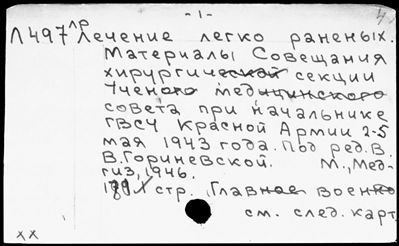 - 1 -
Л497 лр Лечение легко раненых.
Материалы Совещания
хирургической секции
Ученого медицинского
совета при начальнике
ГВСУ Красной Армии 2-5
мая 1943 года. Под ред. В.
В. Гориневской. М., Мед-
гиз, 1946.
стр. Главное военно
см. след. карт
xx